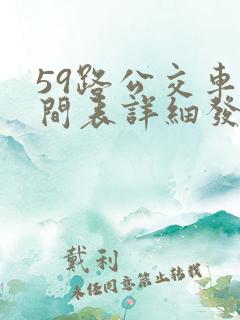 59路公交車
間表詳細發
戴利
未經同意禁止轉載